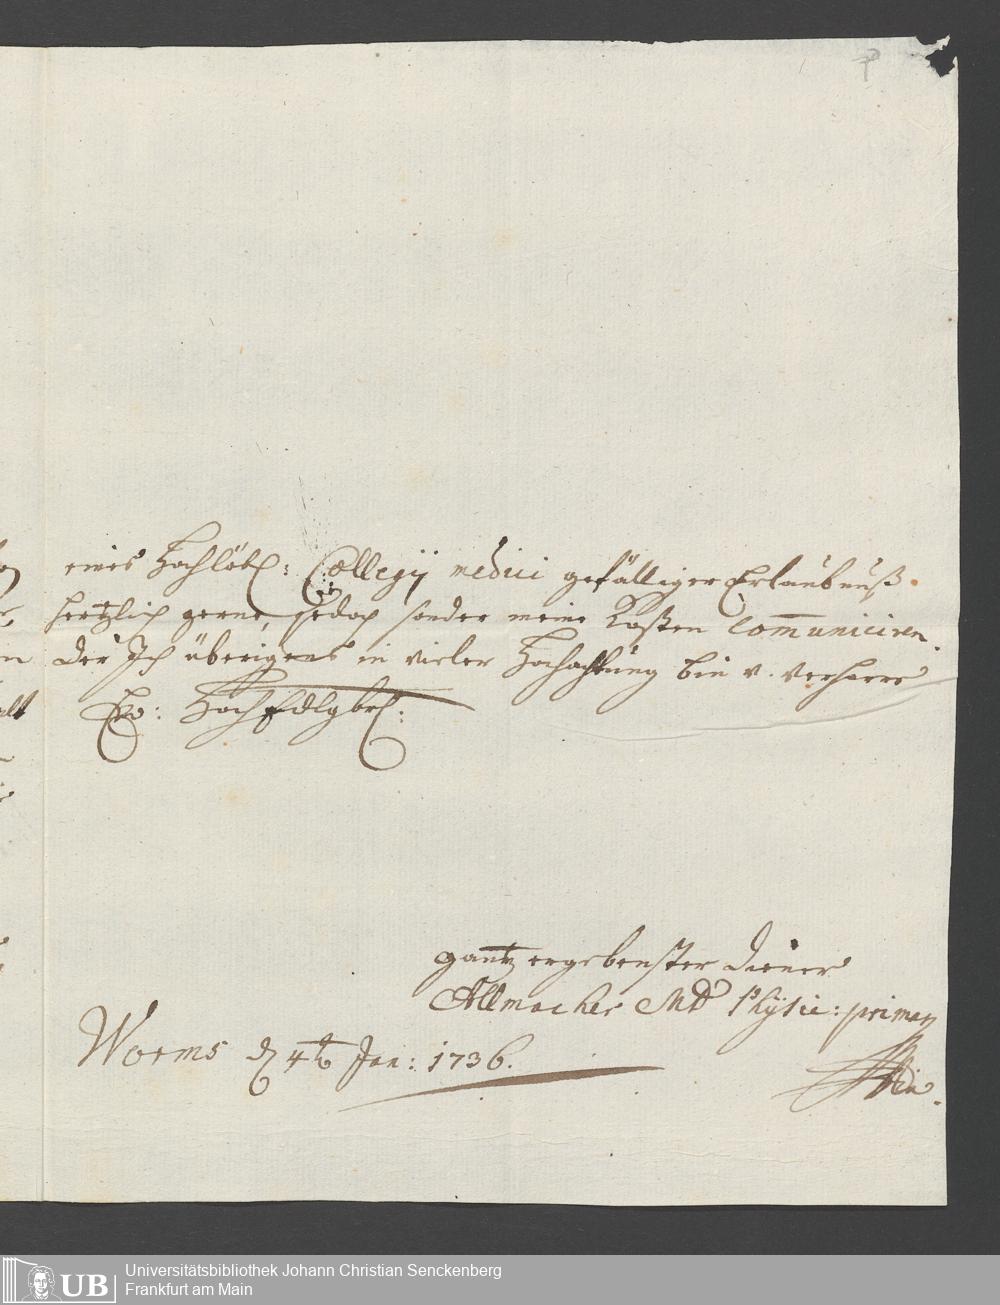 eines Hochlöbl: Collegij medici gefälliger Erlaubnuß.
hertzlich gerne, jedoch sonder meine Kosten communiciren
der Ich übrigens in vieler Hochachtung bin v. verharre
Ew: HochEdlgbrl:
gantz ergebenster Diener
Allmacher MD Physic: primar
Worms d 4t Jan: 1736.
Universitätsbibliothek Johann Christian Senckenberg
UB
Frankfurt am Main